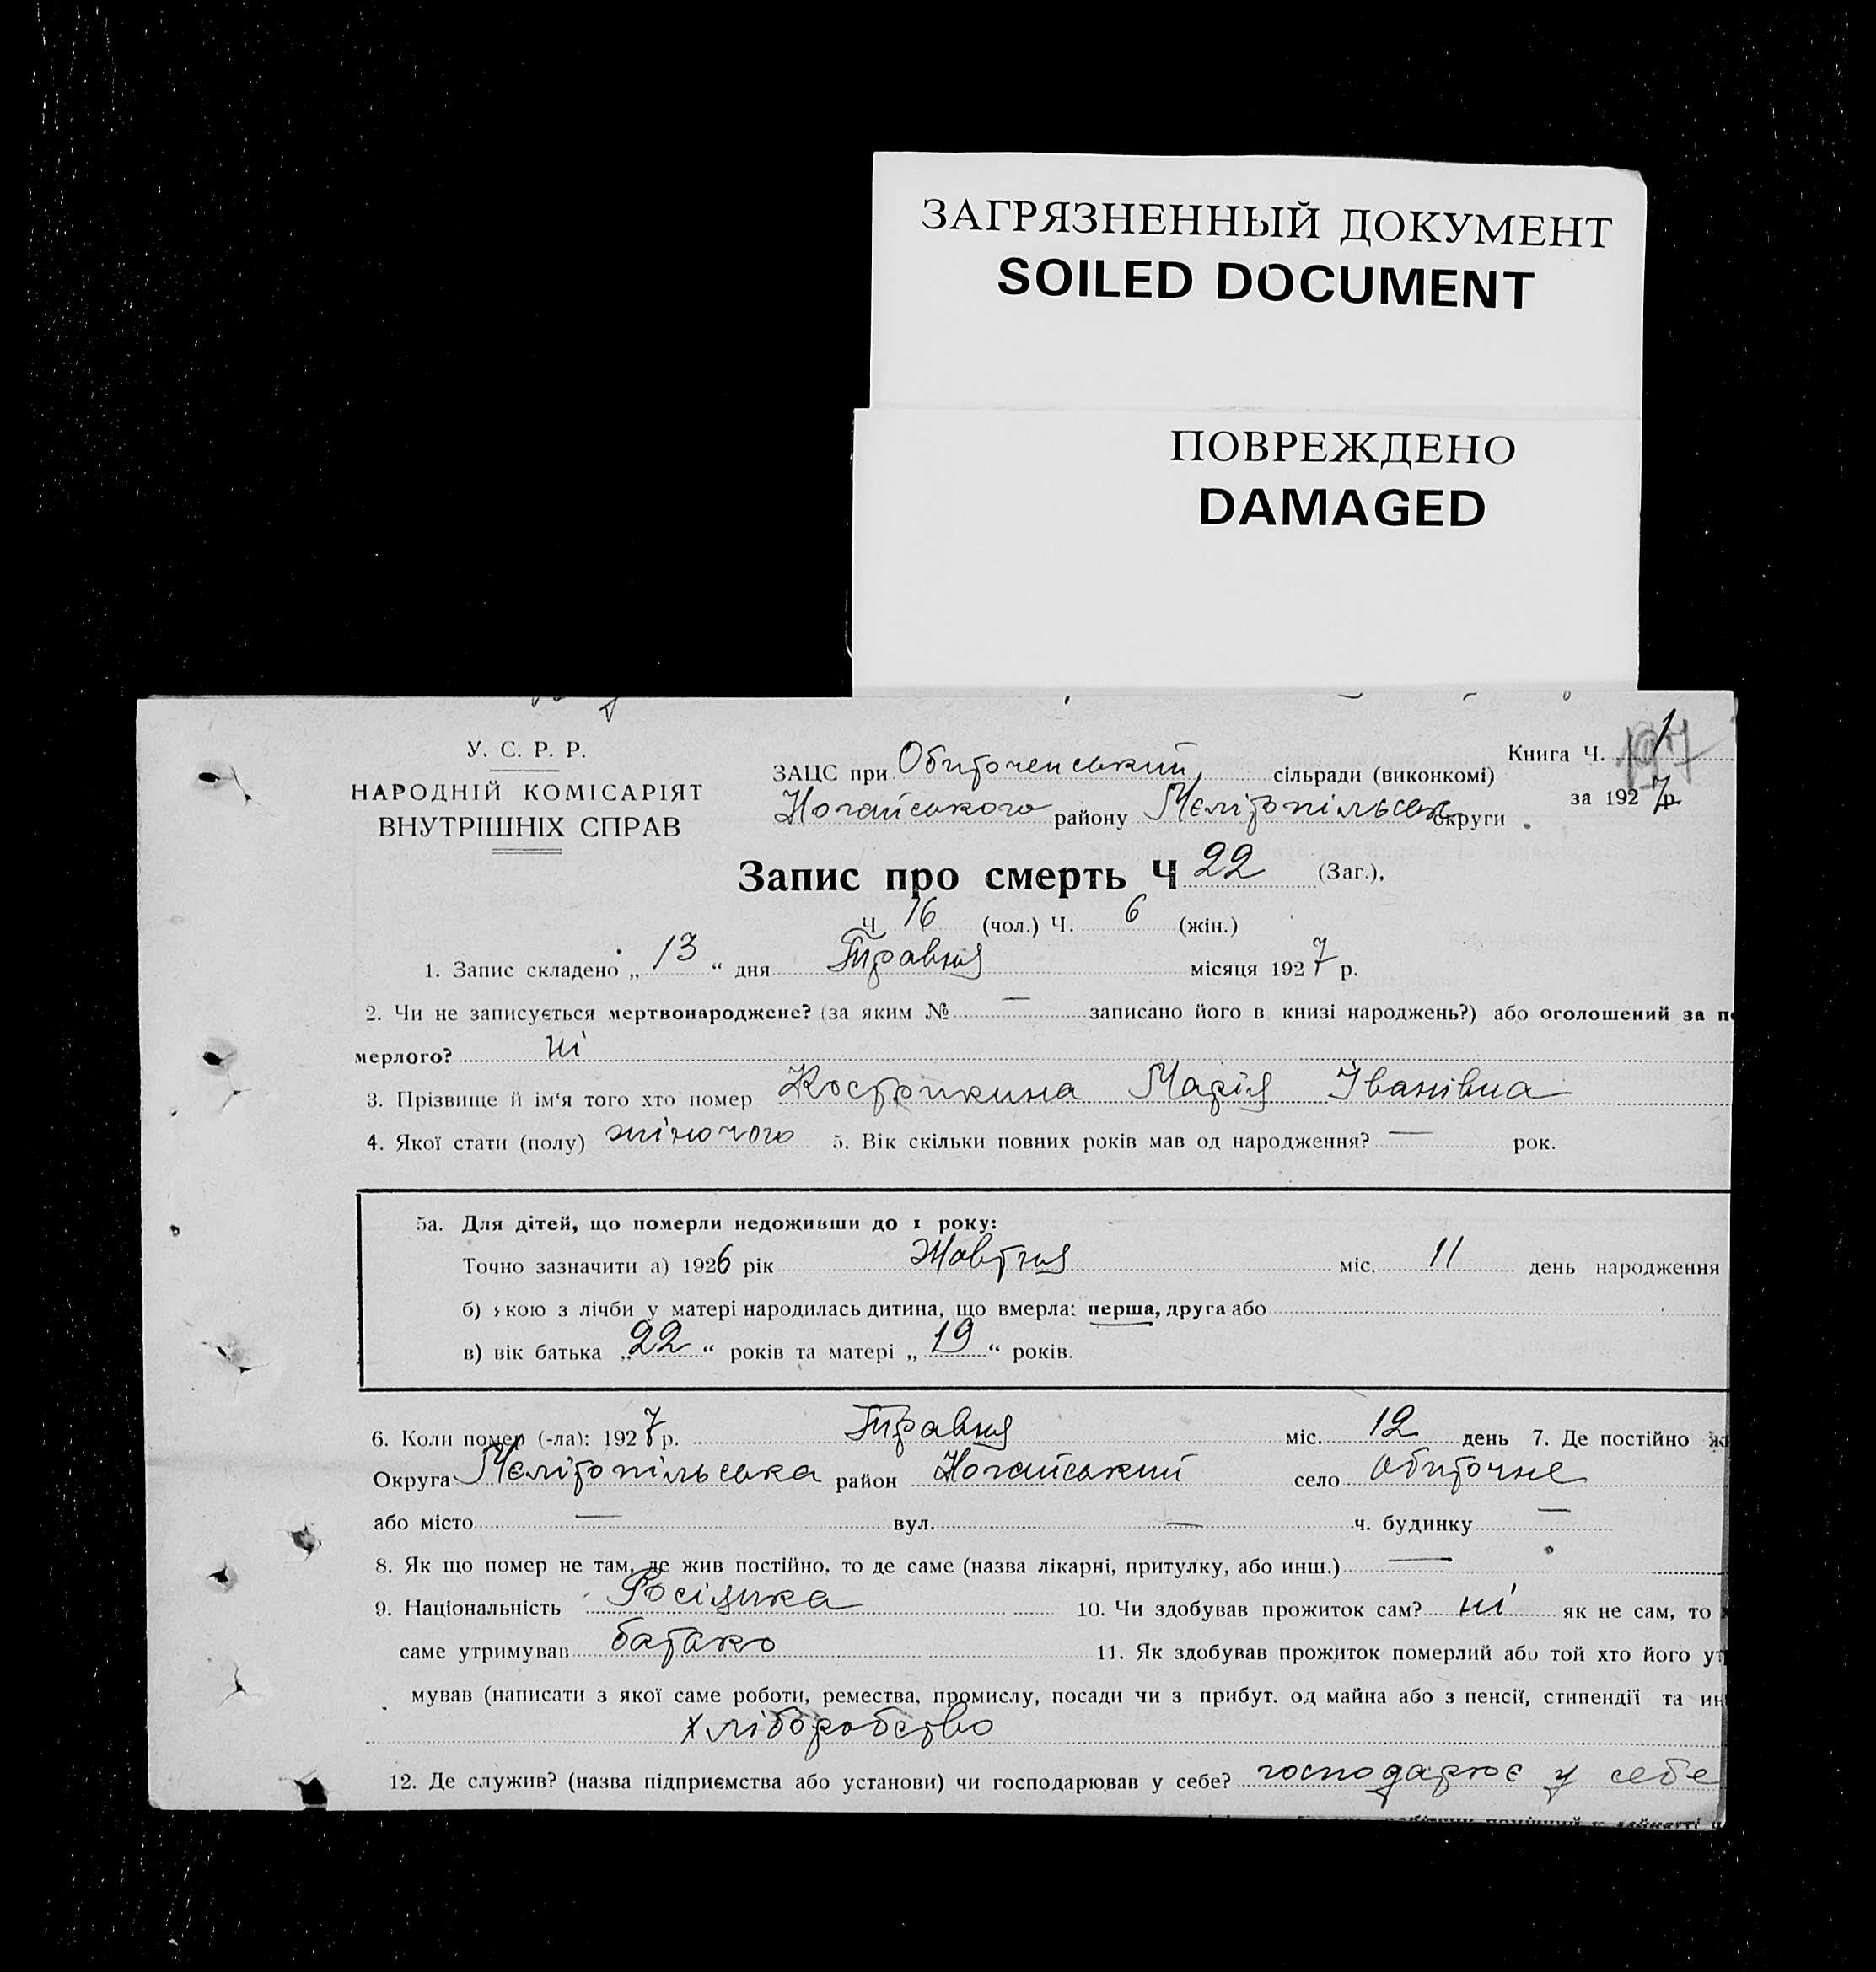 ЗАГРЯЗНЕННЫЙ ДОКУМЕНТ
SOILED DOCUMENT
ПОВРЕЖДЕНО
DAMAGED
У. С. Р. Р.
НАРОДНІЙ КОМІСАРІЯТ
ВНУТРІШНІХ СПРАВ
Книга Ч. 1
за 1927 р.
ЗАЦС при Обиточенський сільради (виконкомі)
Ногайського району Мелітопільськ округи
Запис про смерть Ч 22 (Заг.),
Ч 16 (чол.) Ч. 6 (жін.)
1. Запис складено „ 13 “ дня Травня місяця 1927 р.
2. Чи не записується мертвонароджене? (за яким № — записано його в книзі народжень?) або оголошений за по
мерлого? ні
3. Прізвище й ім'я того хто помер Кострикина Марія Іванівна
4. Якої стати (полу) жіночого 5. Вік скільки повних років мав од народження? — рок.
5а. Для дітей, що померли недоживши до 1 року:
Точно зазначити а) 1926 рік Жовтня міс. 11 день народження
б) якою з лічби у матері народилась дитина, що вмерла: перша, друга або
в) вік батька „ 22 “ років та матері „ 19 “ років.
6. Коли помер (-ла): 1927 р. Травня міс. 12 день 7. Де постійно ж
Округа Мелітопільська район Ногайський село Обиточне
або місто — вул. — ч. будинку —
8. Як що помер не там, де жив постійно, то де саме (назва лікарні, притулку, або инш.) —
9. Національність Росіянка 10. Чи здобував прожиток сам? ні як не сам, то
саме утримував батько 11. Як здобував прожиток померлий або той хто його ут
мував (написати з якої саме роботи, ремества, промислу, посади чи з прибут. од майна або з пенсії, стипендії та ин
хліборобство
12. Де служив? (назва підприємства або установи) чи господарював у себе? господарює у себе